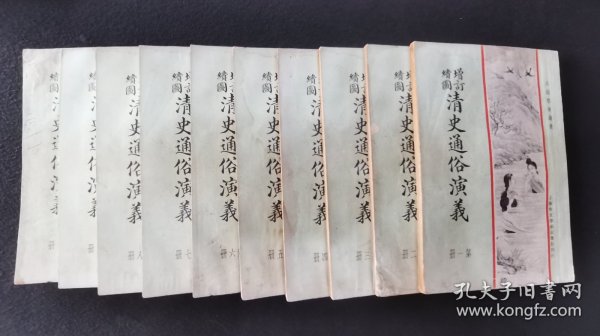 增訂
繪圖
清史通俗演義
第一冊
增訂
繪圖
清史通俗演義
二冊
增訂
繪圖
清史通俗演義
三冊
增訂
繪圖
清史通俗演義
四冊
增訂
繪圖
清史通俗演義
五冊
增訂
繪圖
清史通俗演義
六冊
增訂
繪圖
清史通俗演義
七冊
繪圖
清史通俗演義
八冊
繪圖
清史通俗演義
冊
繪圖
清史通俗演義
冊
孔夫子旧书网
www.kongfz.com